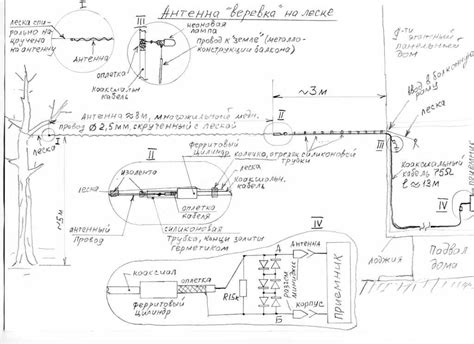 Антенна "веревка" на леске
III
леска спи-
рально на-
кручена
на антенну
Антенна
неоновая
лампа
провод к "земле" (металло-
конструкции балкона)
оплетка
коаксиальн.
кабель
9-ти
этажный
панельный
дом
~3м
ввод в балконную
раму
леска
Антенна 98,8м, многожильный медн.
провод Ø 2,5мм, скрученный с леской
леска
I
II
III
ферритовый
цилиндр.
колечко, отрезок силиконовой
трубки
II
изолента
леска
коаксиальн.
кабель
леска
антенный
провод
оплетка
кабеля
силиконовая
трубка, концы залиты
герметиком
~15м
коаксиальный
кабель 75Ω
ℓ≈13м
IV
приемник
лоджия
Подвал
дома
IV
коаксиал
оплетка
ферритовый
цилиндр
R15к
А
Б
Антенна
разъем
корпус
приемник